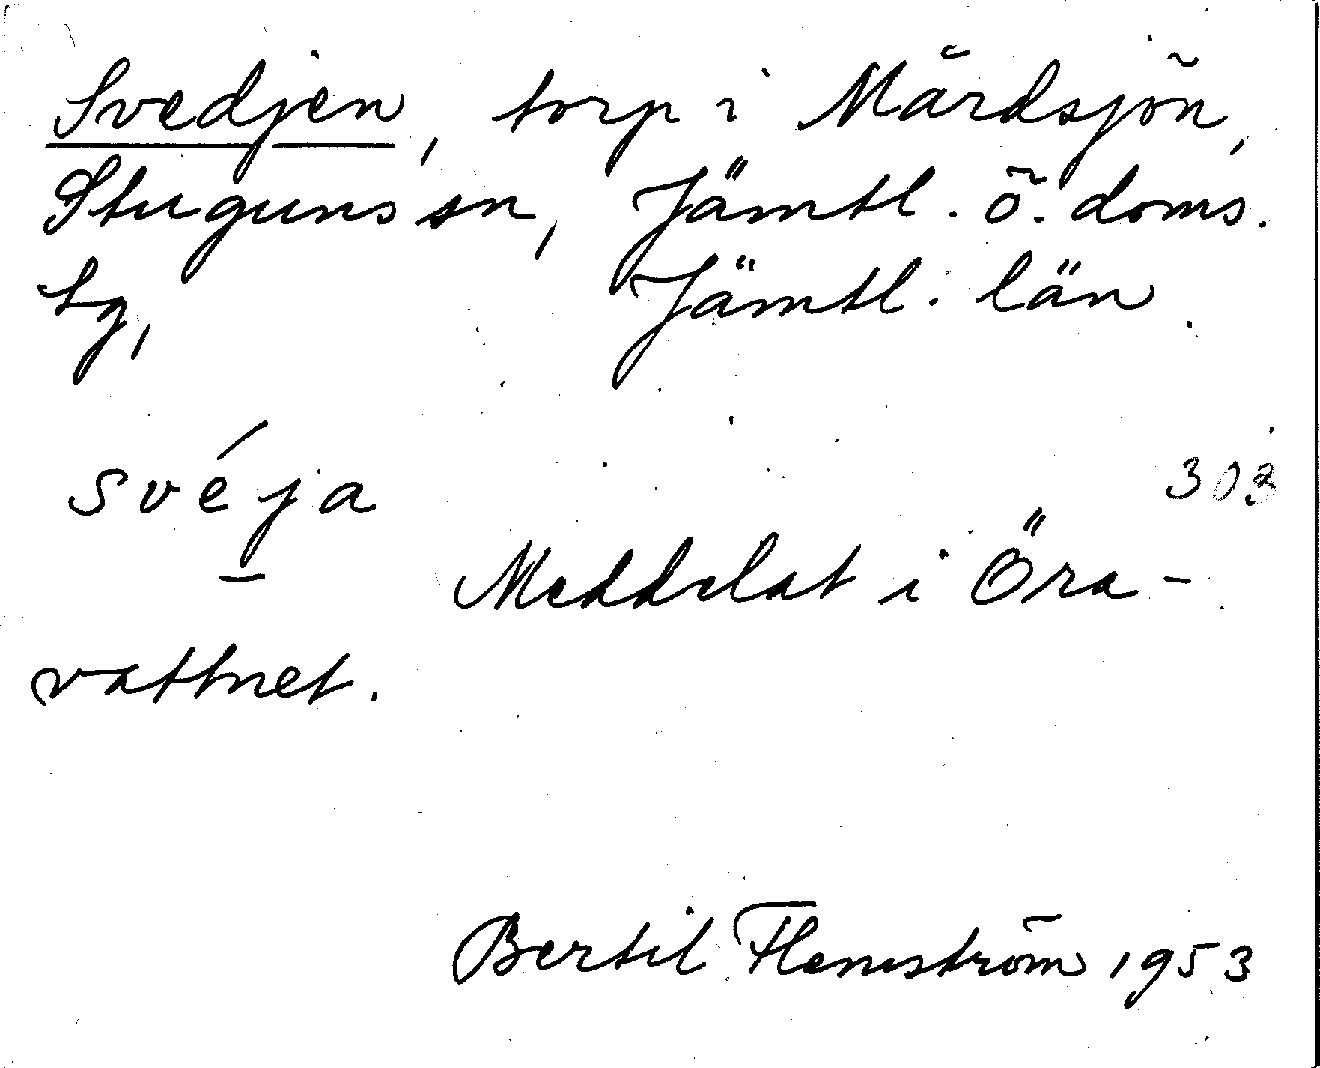 Svedjen, torp i Mårdsjön,
Stuguns sn, Jämtl. ö. doms.
tg, Jämtl. län.
svéja 303
Meddelat i Öra-
vattnet.
Bertil Flemström 1953